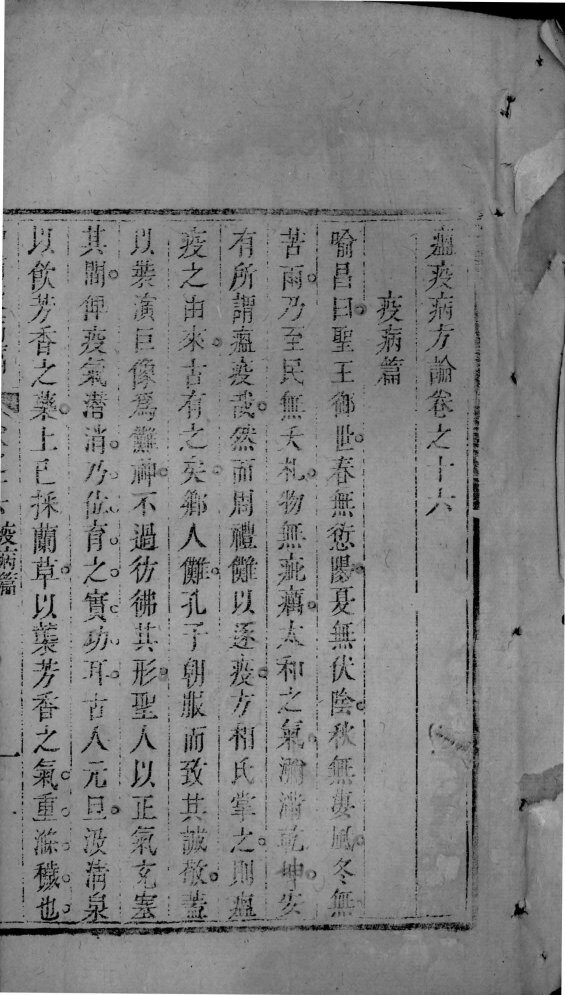 瘟疫病方論卷之十六
疫病篇
喻昌曰聖王御世春無愆陽夏無伏陰秋無凄風冬無
苦雨乃至民無夭札物無疵癘太和之氣瀰滿乾坤安
有所謂瘟疫哉然而周禮儺以逐疫方相氏掌之則瘟
疫之由來古有之矣鄉人儺孔子朝服而致其誠敬蓋
以裝演巨像爲儺神不過彷彿其形聖人以正氣充塞
其間俾疫氣潛消乃位育之實功耳古人元旦汲清泉
以飲芳香之藥上巳採蘭草以葉芳香之氣重滌穢也
疫病篇
一